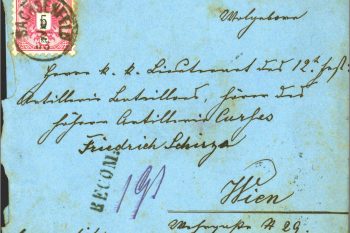 SACHSENFELD
5
Wolgeborn
Herrn k. k. Lieutenant des 12t Fest:
Artillerie Bataillons, Hörer des
höhern Artillerie Curses
Friedrich Schirza
RECOM.
191
Wien
29.